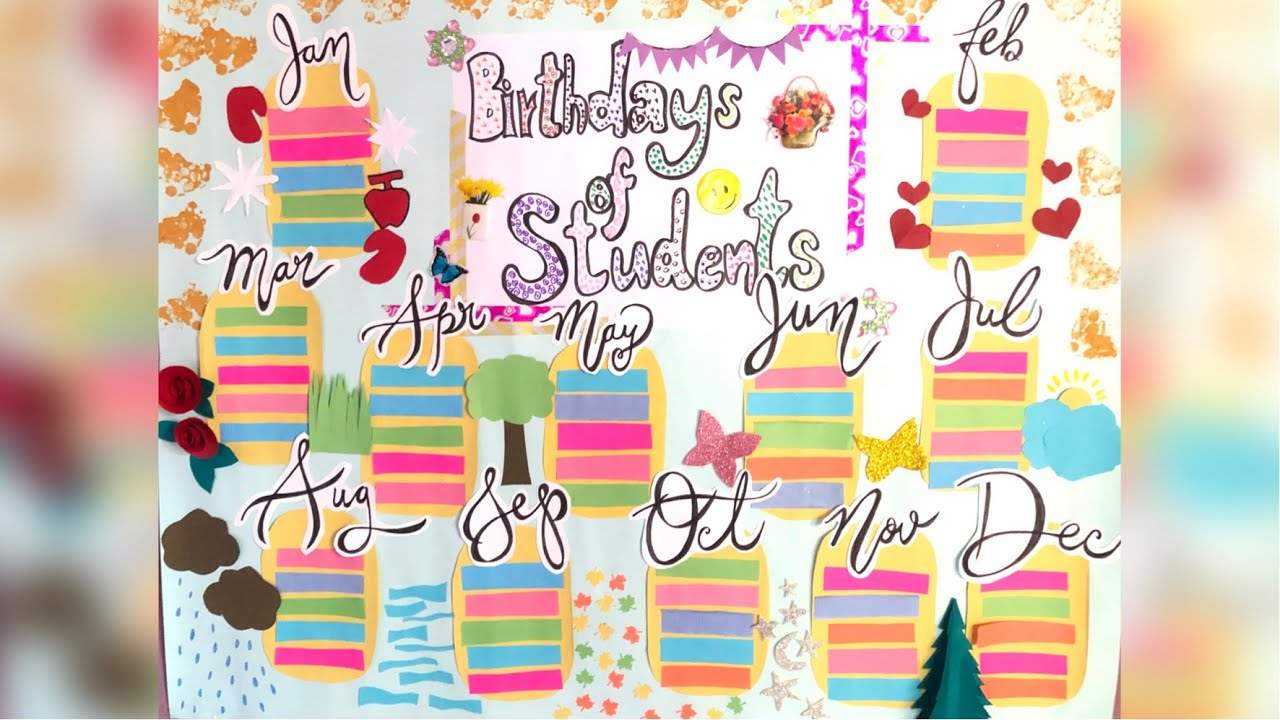 Jan
Birthdays
of
Students
feb
Mar
Apr
May
Jun
Jul
Aug
Sep
Oct
Nov
Dec